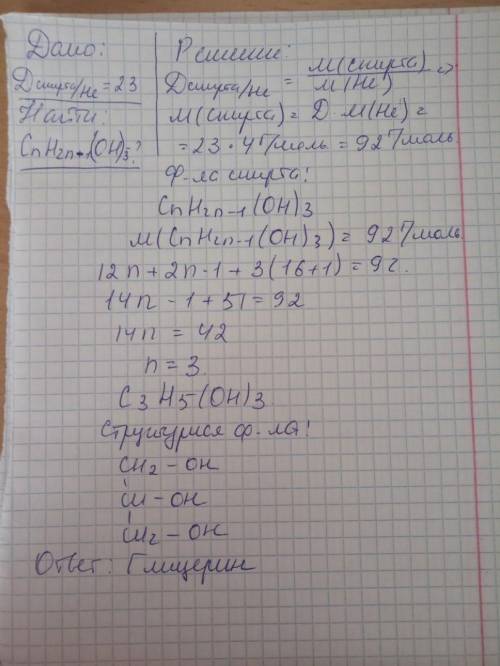 Дано:
D спирта/He = 23
Найти:
CnH2n-1(OH)3?
Решение:
D спирта/He = M(спирта) / M(He) =>
M(спирта) = D M(He) =
= 23 · 4 г/моль = 92 г/моль
Ф-ла спирта:
CnH2n-1(OH)3
M(CnH2n-1(OH)3) = 92 г/моль
12n + 2n - 1 + 3(16+1) = 92.
14n - 1 + 51 = 92
14n = 42
n = 3
C3H5(OH)3
Структурная ф-ла:
CH2 - OH
|
CH - OH
|
CH2 - OH
Ответ: Глицерин